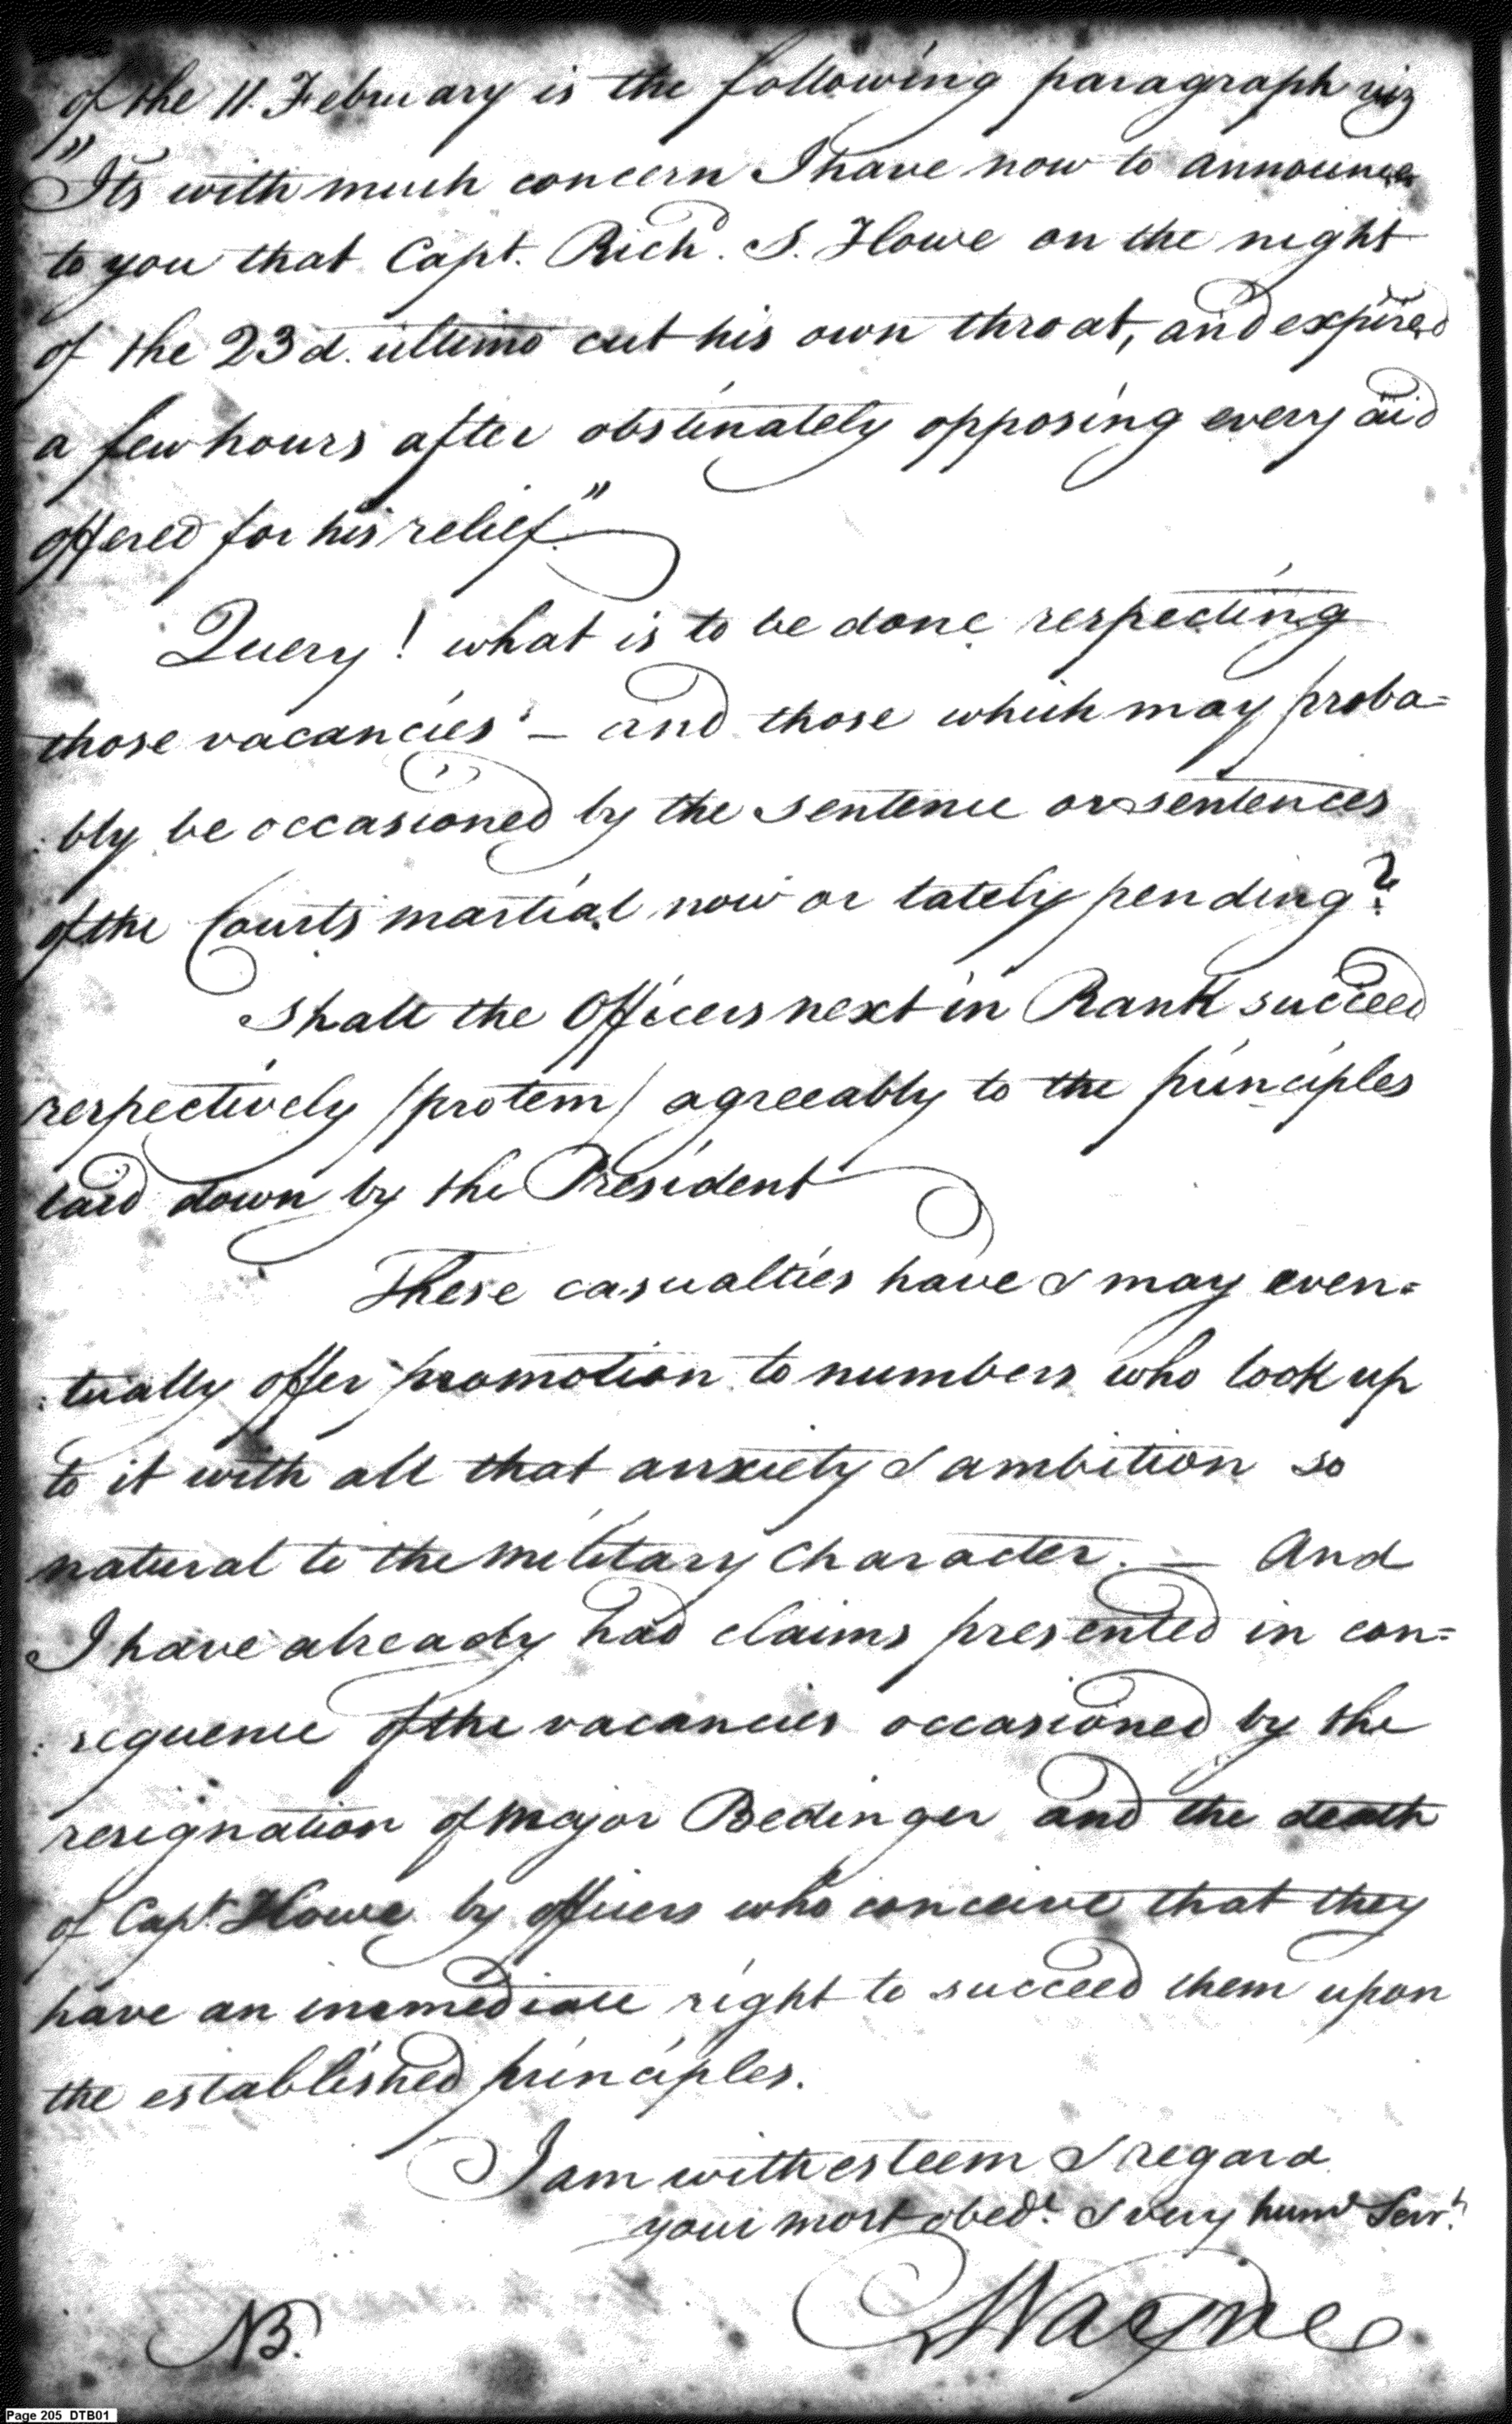 of the 11. February is the following paragraph viz
"Its with much concern I have now to announce
to you that Capt. Richd. S. Howe on the night
of the 23d. ultimo cut his own throat, and expired
a few hours after obstinately opposing every aid
offered for his relief."
Query! what is to be done respecting
those vacancies - and those which may proba=
:bly be occasioned by the sentence or sentences
of the Courts martial now or lately pending?
Shall the Officers next in Rank succeed
respectively /protem/ agreeably to the principles
laid down by the President
These casualties have & may even=
:tually offer promotion to numbers who look up
to it with all that anxiety & ambition so
natural to the military Character. — And
I have already had claims presented in con=
:sequence of the vacancies occasioned by the
resignation of Major Bedinger and the death
of Capt. Howe by officers who conceive that they
have an immediate right to succeed them upon
the established principles.
I am with esteem & regard
your most obedt. & very huml Servt.
NB. Wayne
Page 205 DTB01